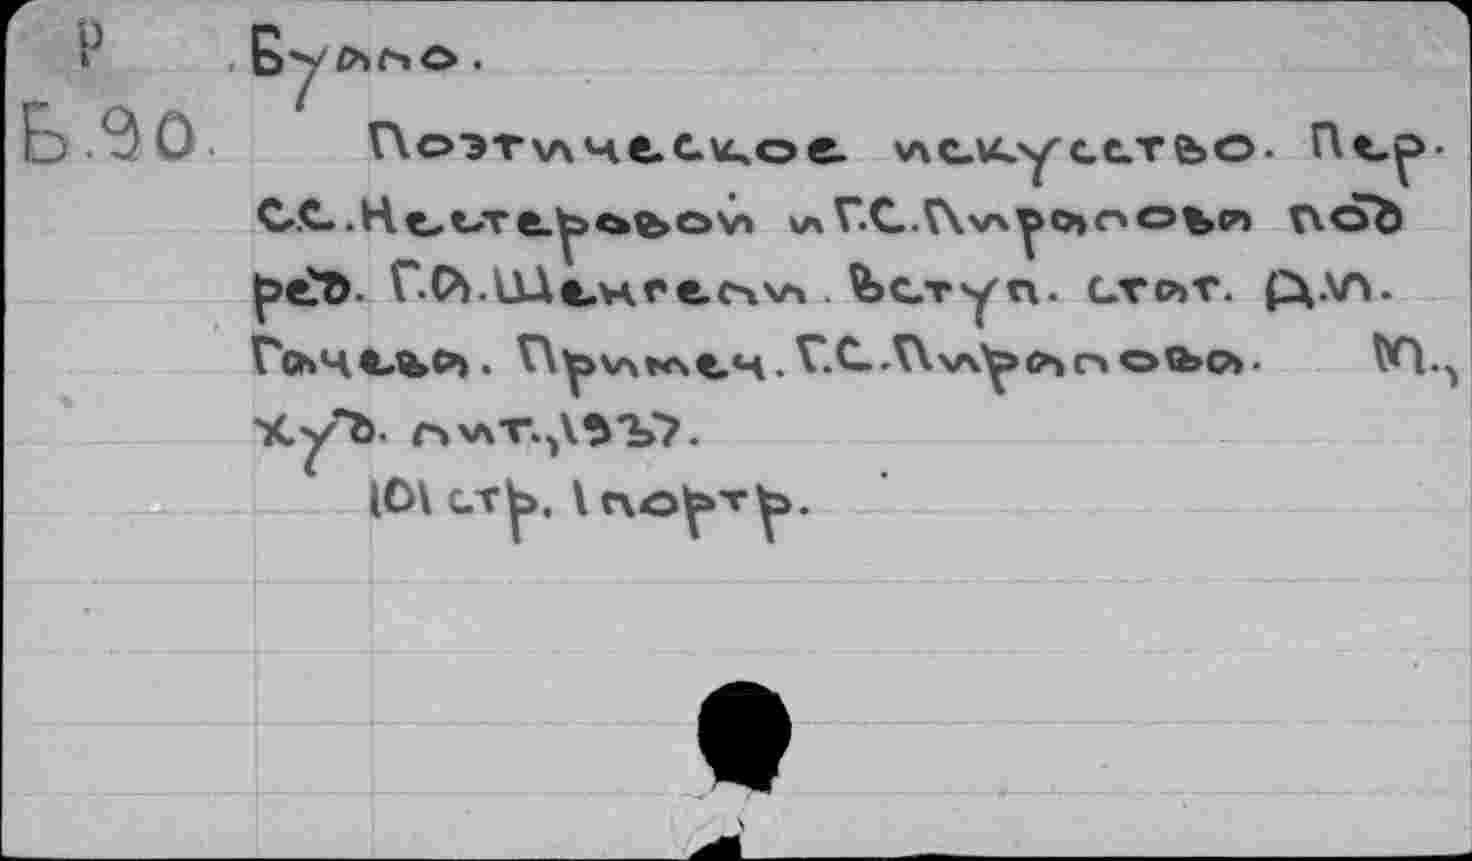 Р Буало.
Б.90. Поэтическое искусство. Пер.
С.С.Нестеровой и Г.С.Пиралова под
ред. Г.А.Шенгели. Вступ. стат. Д.И.
Гачева. Примеч. Г.С.Пиралова. М.,
Худ. лит.,1937.
101 стр. 1 портр.